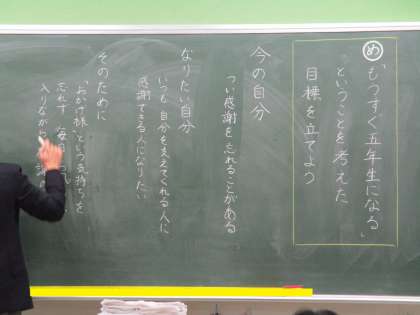 め
「もうすぐ五年生になる」
ということを考えた
目標を立てよう
今の自分
つい感謝を忘れることがある
なりたい自分
いつも自分を支えてくれる人に
感謝できる人になりたい
そのために
「おかげ様」という気持ちを
忘れず 毎日
入りながら